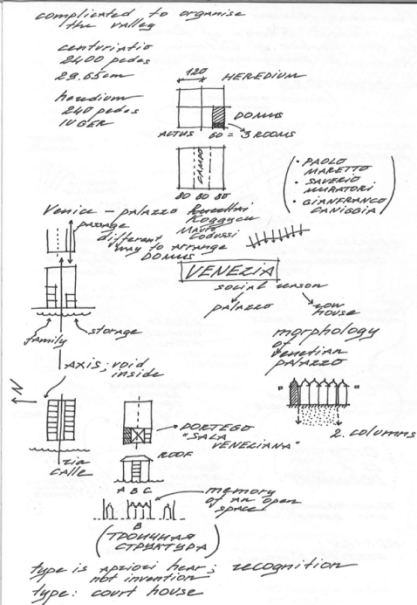 complicated to organise
the valley
centuriatio
2400 pedes
29.65cm
heredium
240 pedes
IUGER
120
HEREDIUM
DOMUS
ACTUS 60 = 3 ROOMS
CAMPO
80 80 80
• PAOLO
MARETTO
• SAVERIO
MURATORI
• GIANFRANCO
CANIGGIA
Venice - palazzo
passage
Mauro
Codussi
different
way to arrange
DOMUS
VENEZIA
social reason
palazzo
row
house
family
storage
morphology
of
venetian
palazzo
AXIS; void
inside
N
2. columns
PORTEGO
"SALA
VENEZIANA"
ROOF
calle
A B C
memory
of an open
space
B
(ТРОИЧНАЯ
СТРУКТУРА)
type is apriori hear; recognition
not invention
type: court house